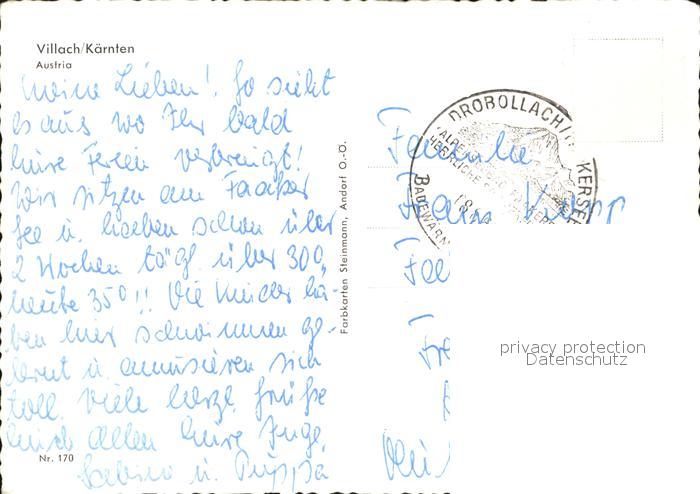 Villach/Kärnten
Austria
Meine Lieben! So sieht
es aus wo Ihr bald
Eure Ferien verbringt!
Wir sitzen am Faaker
See u. haben schon über
2 Wochen tägl. über 30°,
heute 35°!! Die Kinder ha-
ben hier schwimmen ge-
lernt u. amüsieren sich
toll. Viele herzl. Grüße
Euch allen Eure Inge,
Sabine u. Puppa
Nr. 170
Farbkarten Steinmann, Andorf O.-Ö.
DROBOLLACH
Familie
Franz
privacy protection
Datenschutz